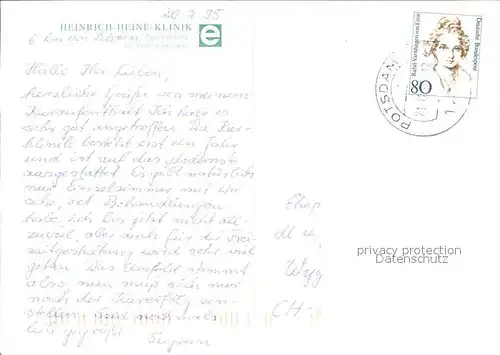 20 7 95
HEINRICH-HEINE-KLINIK
6 km von Potsdam
Hallo Ihr Lieben,
herzliche Grüße von meinem
Kuraufenthalt. Ich habe es
sehr gut angetroffen. Die Kur-
klinik besteht erst ein Jahr
und ist auf das Modernste
ausgestattet. Es gibt natürlich
nur Einzelzimmer mit
Behandlungen
habe ich bis jetzt nicht all-
zuviel, aber auch für die Frei-
zeitgestaltung wird sehr viel
getan. Das Umfeld stimmt
also, nun muß sich nur
noch der Kurerfolg ein-
stellen. Seid nochmals
lieb gegrüßt
Deutsche Bundespost
Rahel Varnhagen von Ense
80
POTSDAM
1
Ehep
CH-
privacy protection
Datenschutz
e